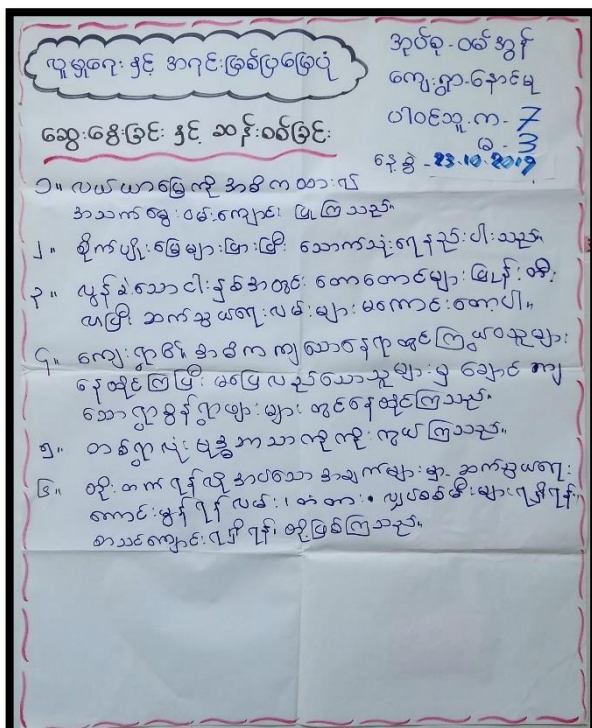 လူမှုရေး နှင့် အရင်းမြစ်ပြမြေပုံ
ဆွေးနွေးခြင်း နှင့် ဆန်းစစ်ခြင်း
အုပ်စု - ဝမ်အွန်
ကျေးရွာ - နောင်မု
ပါဝင်သူ - က - 7
ခ - 3
နေ့စွဲ - 23.10.2019
၁။ လယ်ယာမြေကို အဓိကထား၍
အသက်မွေးဝမ်းကျောင်း ပြုကြသည်။
၂။ စိုက်ပျိုးမြေများပြားပြီး သောက်သုံးရေနည်းပါးသည်။
၃။ လွန်ခဲ့သောငါးနှစ်အတွင်း တောတောင်များ ပြုန်းတီး
လာပြီး ဆက်သွယ်ရေးလမ်းများ မကောင်းတော့ပါ။
၄။ ကျေးရွာ၏ အဓိကကျသောနေရာတွင် ကြွယ်ဝသူများ
နေထိုင်ကြပြီး မပြေလည်သောသူများမှ ချောင်ကျ
သောရွာစွန်ရွာဖျားများတွင်နေထိုင်ကြသည်။
၅။ တစ်ရွာလုံး ဗုဒ္ဓဘာသာကိုကိုးကွယ်ကြသည်။
၆။ တိုးတက်ရန်လိုအပ်သော အချက်များမှာ ဆက်သွယ်ရေး
ကောင်းမွန်ရန် လမ်း၊ တံတား၊ လျှပ်စစ်မီးများရရှိရန်၊
စာသင်ကျောင်းရရှိရန် တို့ဖြစ်ကြသည်။